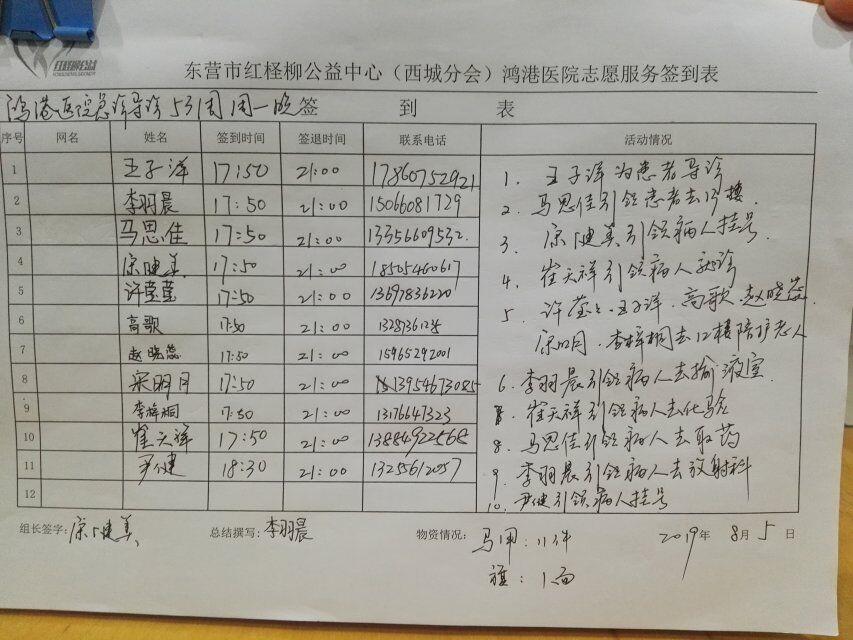 东营市红柽柳公益中心（西城分会）鸿港医院志愿服务签到表
鸿港医院急诊导诊 531周 周一晚 签 到 表
序号 网名 姓名 签到时间 签退时间 联系电话 活动情况
1 王子洋 17:50 21:00 17860752921
2 李羽晨 17:50 21:00 15066081729
3 马思佳 17:50 21:00 13356609532
4 宗健美 17:50 21:00 18505460617
5 许莹莹 17:50 21:00 13697836220
6 高歌 17:50 21:00
7 赵晓蕊 17:50 21:00 15965292001
8 宋明月 17:50 21:00 13954673085
9 李梓桐 17:50 21:00 13176647323
10 崔天祥 17:50 21:00 13884922568
11 尹健 18:30 21:00 13255612057
12
1. 王子洋为患者导诊
2. 马思佳引领患者去13楼.
3. 宗健美引领病人挂号.
4. 崔天祥引领病人就诊
5. 许莹莹.王子洋.高歌.赵晓蕊.
宋明月.李梓桐去12楼陪护老人
6. 李羽晨引领病人去输液室.
崔天祥引领病人去化验
8. 马思佳引领病人去取药
9. 李羽晨引领病人去放射科
10. 尹健引领病人挂号
组长签字: 宗健美 总结撰写: 李羽晨 物资情况: 马甲:11件 2019年 8月 5日
旗:1面